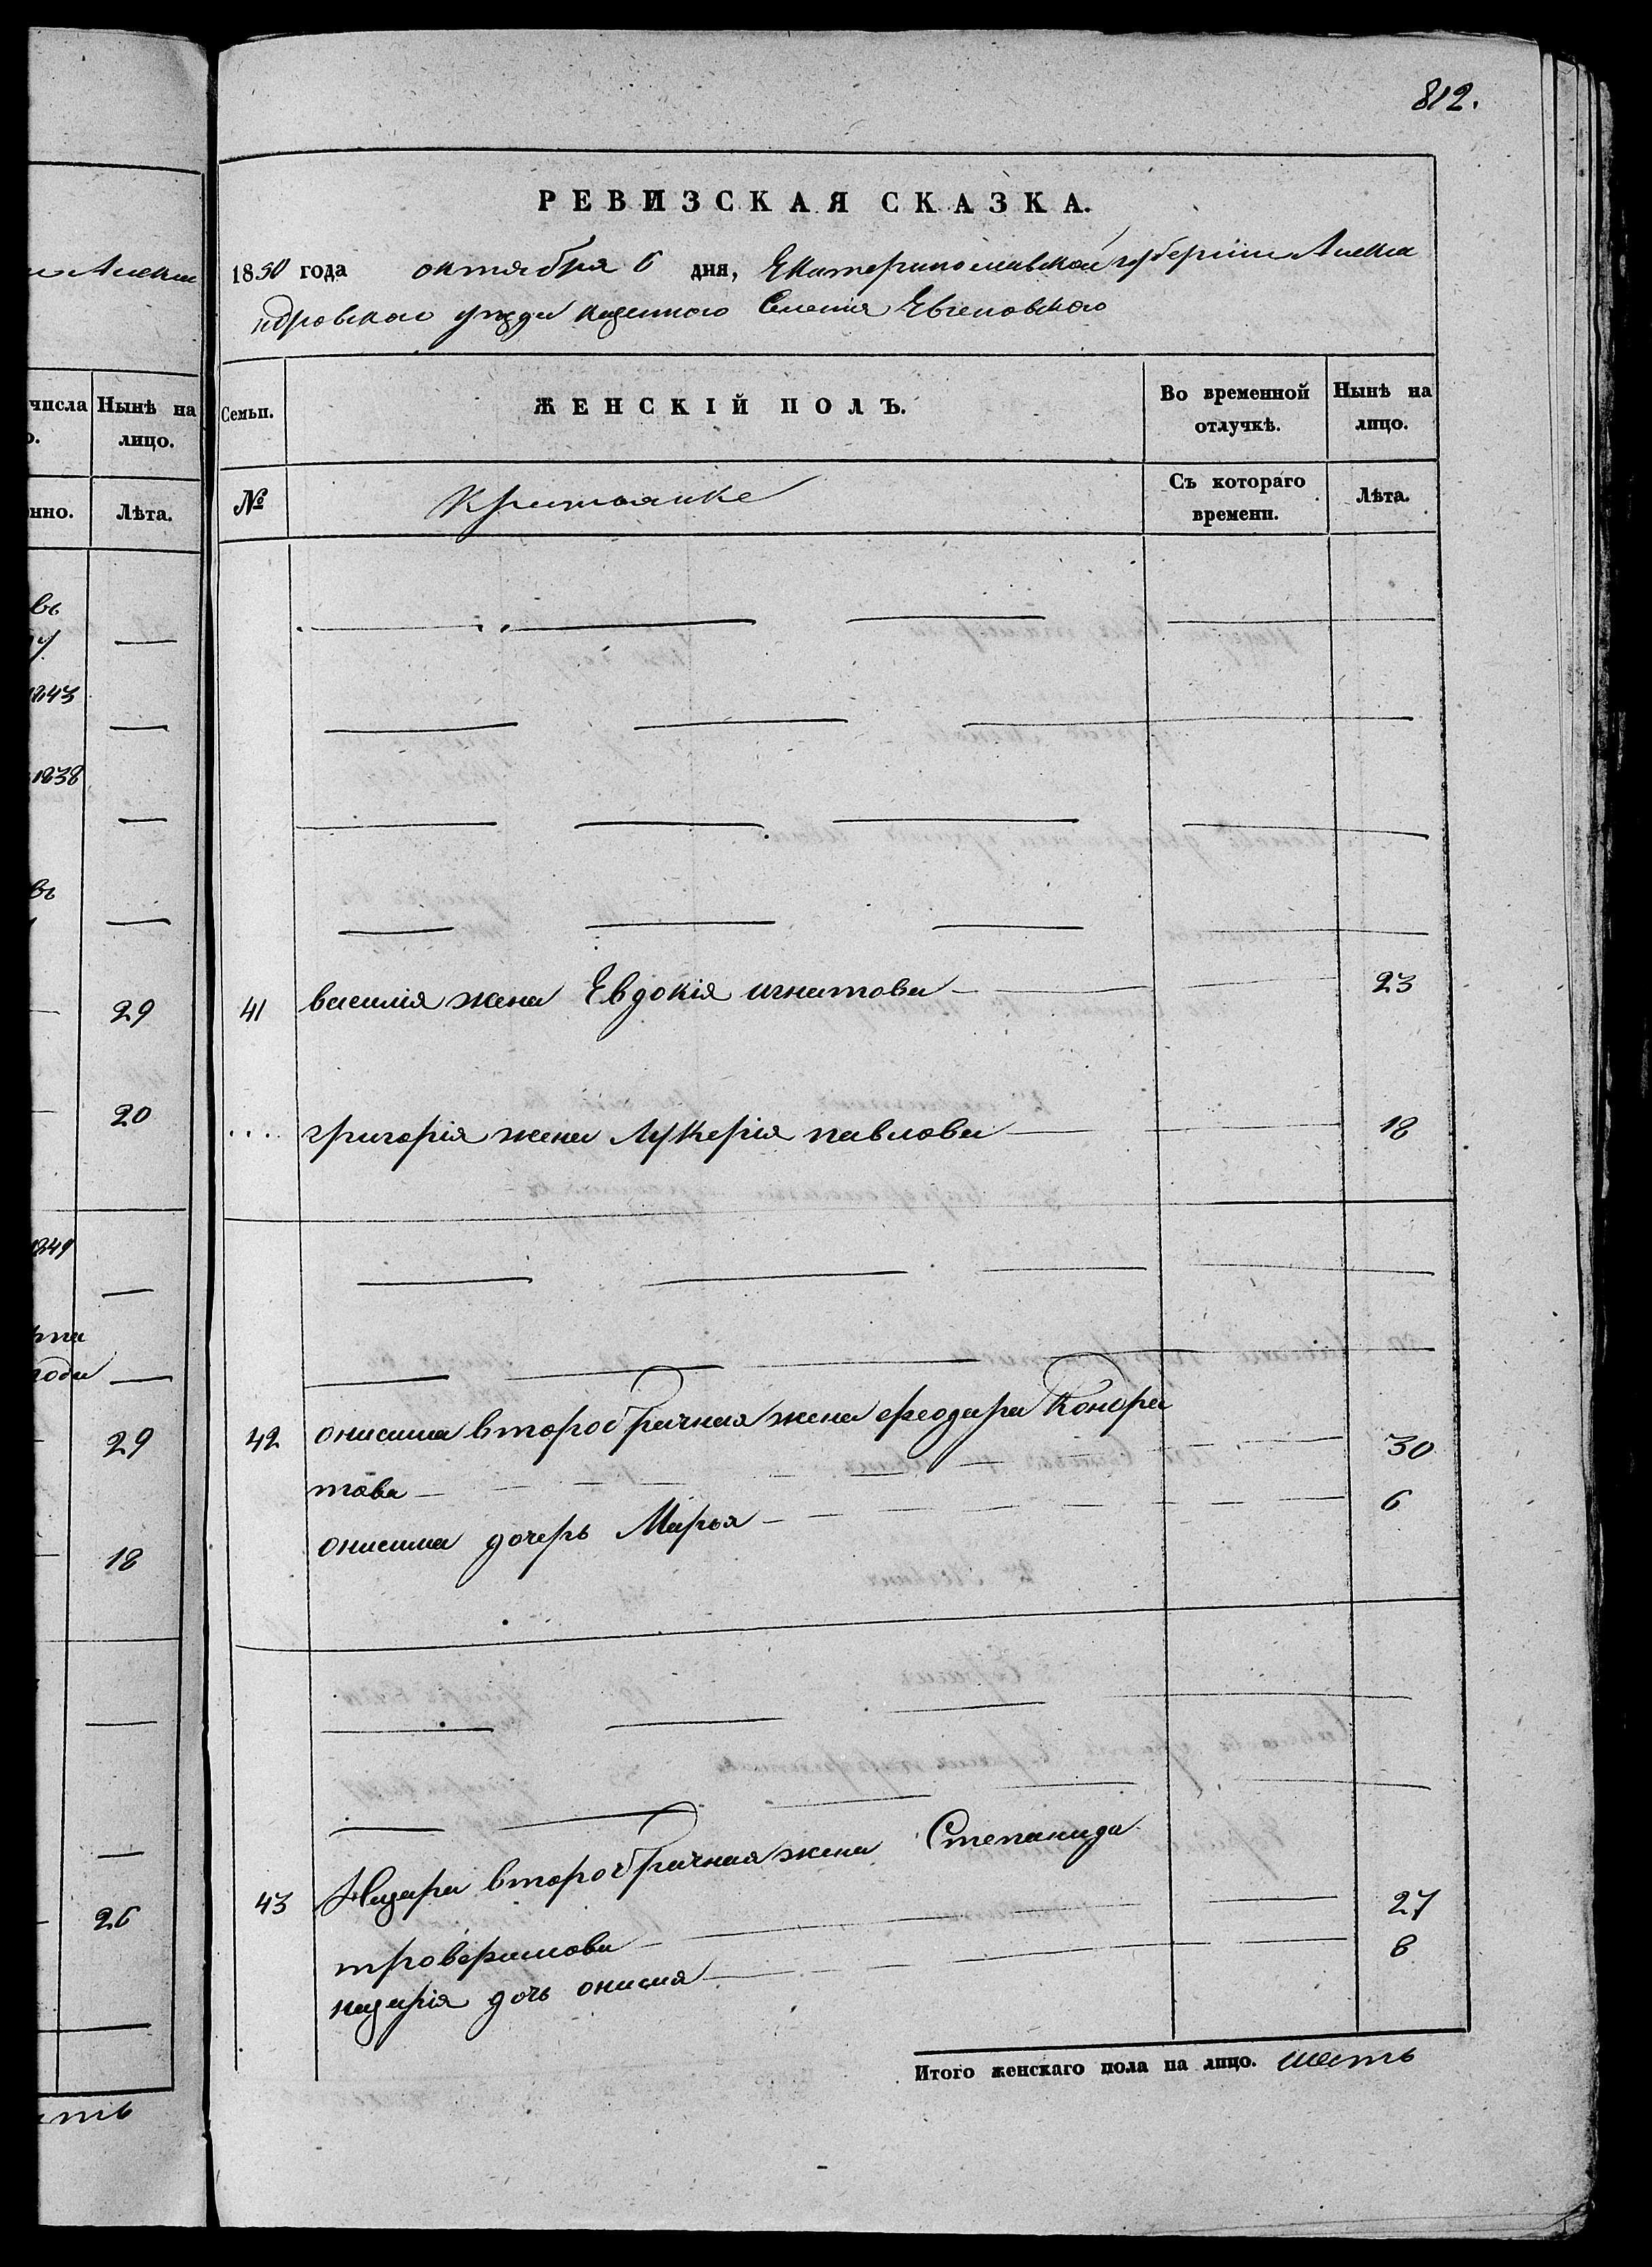 812.
РЕВИЗСКАЯ СКАЗКА.
1850 года октября 6 дня, Екатеринославской губернии Алекса
ндровского уезда казенного Селения Евгеновского
Семьи. ЖЕНСКІЙ ПОЛЪ. Во временной отлучкѣ. Нынѣ на лицо.
№ Крестьянке Съ котораго времени. Лѣта.
41 василия жена Евдокія игнатова 23
григорія жена Лукерія павлова 18
42 онисима второбрачная жена феодора Кондра
това 30
онисима дочерь Марья 6
43 Назара второбрачная жена Степанида
27
назарія дочь онисия 8
Итого женскаго пола на лицо. шесть
Алекса
числа Нынѣ на лицо.
Лѣта.
въ
1843
1838
въ
29
20
1849
года
29
18
26